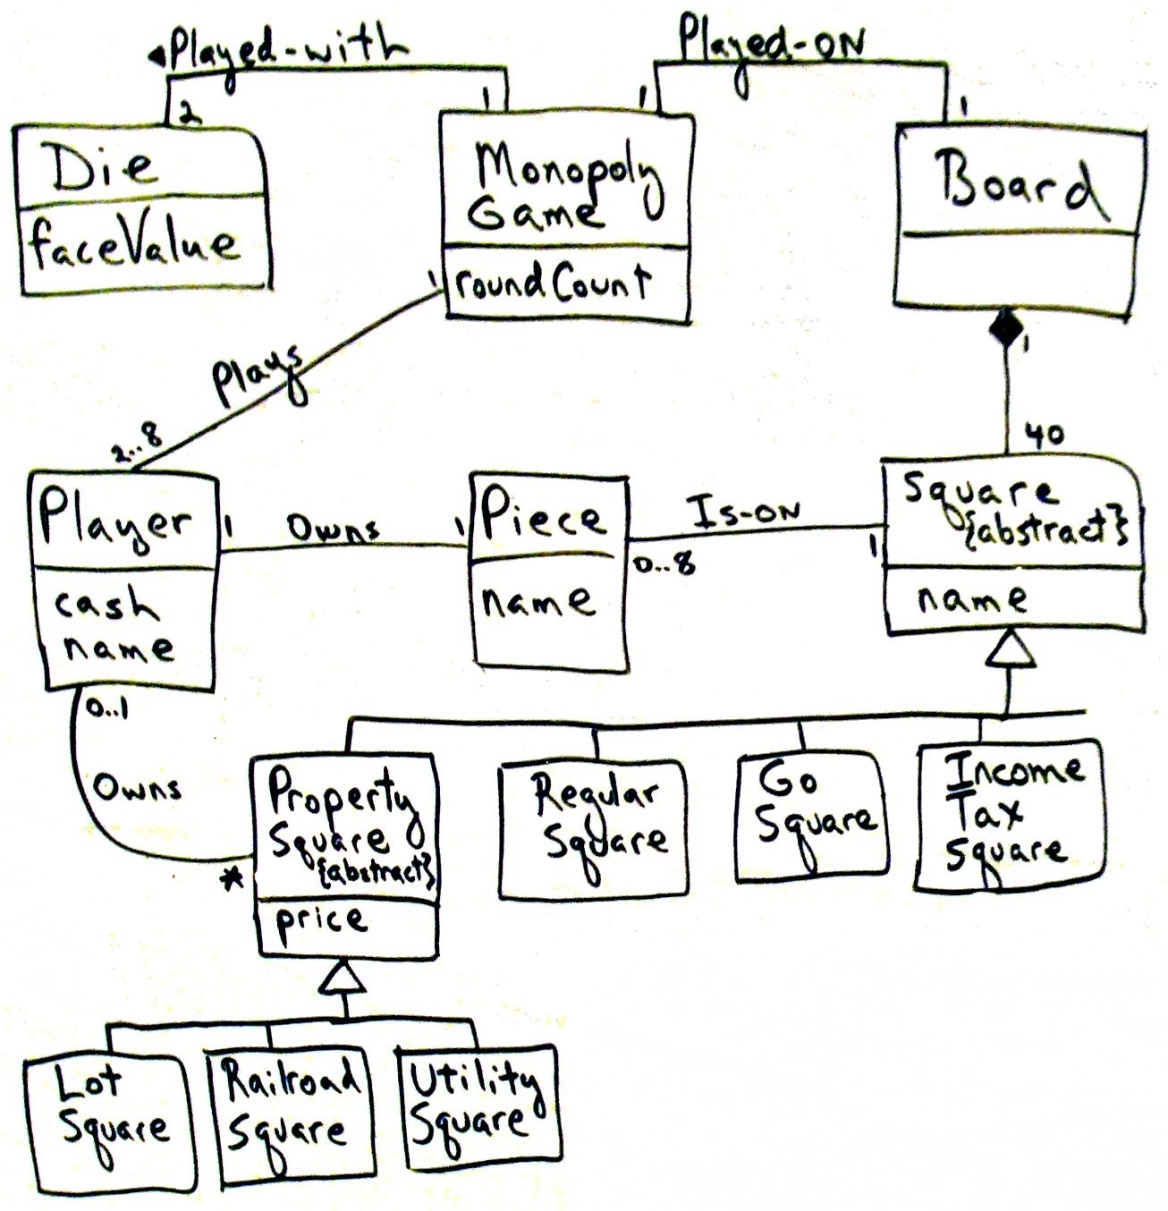 ◄Played-with
Played-ON
2
1
1
1
Die
faceValue
Monopoly
Game
roundCount
Board
1
Plays
2..8
1
40
Player
cash
name
1
Owns
1
Piece
name
Is-ON
0..8
1
Square
{abstract}
name
0..1
Owns
*
Property
Square
{abstract}
price
Regular
Square
Go
Square
Income
Tax
Square
Lot
Square
Railroad
Square
Utility
Square